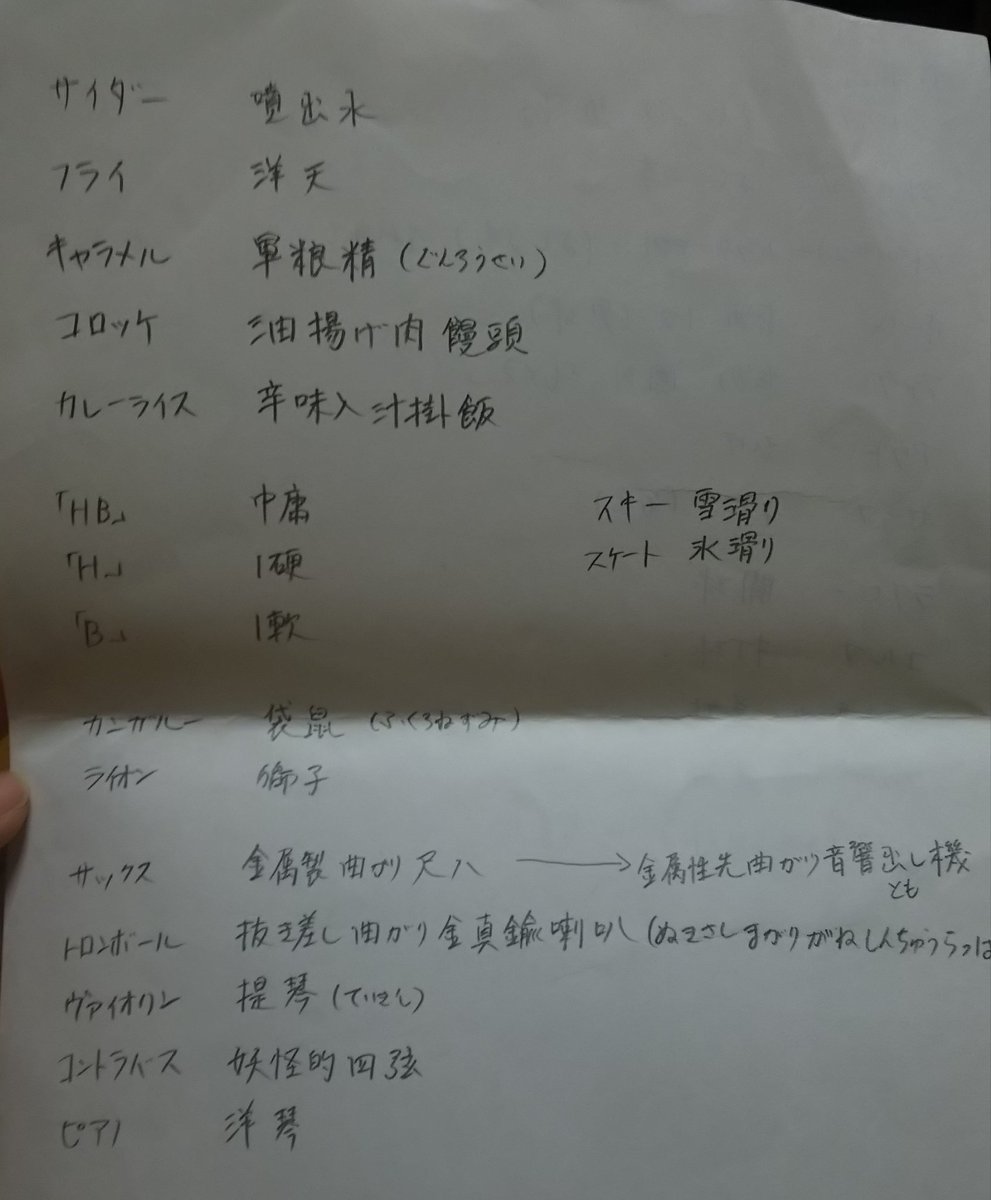 サイダー 噴出水
フライ 洋天
キャラメル 軍粮精（ぐんろうせい）
コロッケ 油揚げ肉饅頭
カレーライス 辛味入汁掛飯
「HB」 中庸
スキー 雪滑り
「H」 1硬
スケート 氷滑り
「B」 1軟
カンガルー 袋鼠（ふくろねずみ）
ライオン 獅子
サックス 金属製曲がり尺八 → 金属性先曲がり音響出し機
とも
トロンボール 抜き差し曲がり金真鍮喇叭（ぬきさしまがりがねしんちゅうらっは
ヴァイオリン 提琴（ていきん）
コントラバース 妖怪的四弦
ピアノ 洋琴